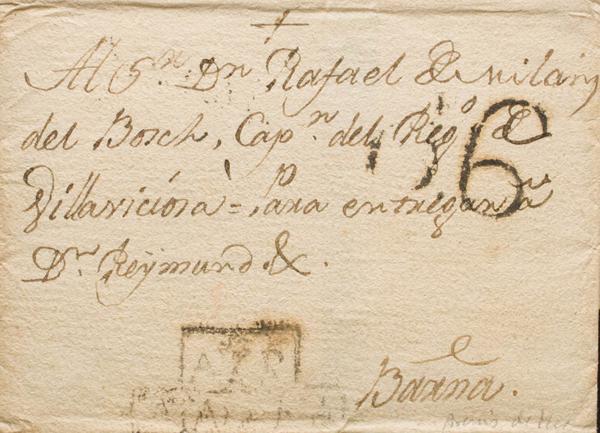 Al Sr. Dn Rafael de Milans
del Bosch, Capn. del Rego. de
Villaviciosa = Para entregar a
Dn. Reymund. &.
6
A.E.P
Barna.